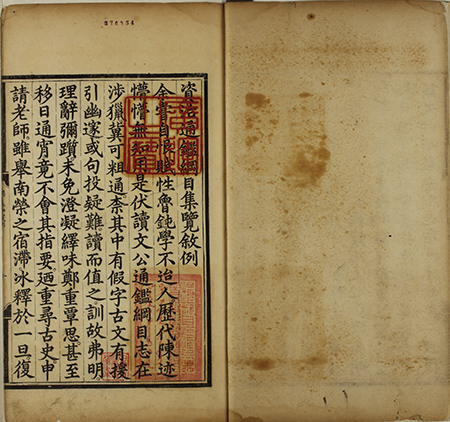 資治通鑑綱目集覽敘例
余嘗自恨賦性魯鈍學不迨人歷代陳迹
懵懵無知是伏讀文公通鑑綱目志在
涉獵冀可粗通柰其中有假字古文有援
引幽邃或句投疑難讀而值之訓故弗明
理辭彌躓未免澄凝繹味鄭重覃思甚至
移日通宵竟不會其指要廼重尋古史申
請老師雖舉南榮之宿滯冰釋於一旦復